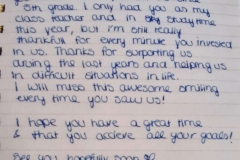 5th grade. I only had you as my
class teacher and in storytime
this year, but I'm still really
thankful for every minute you invested
in us. Thanks for supporting us
during the last years and helping us
in difficult situations in life.
I will miss this awesome smiling
every time you saw us!
I hope you have a great time
& that you achieve all your goals!
See you hopefully soon